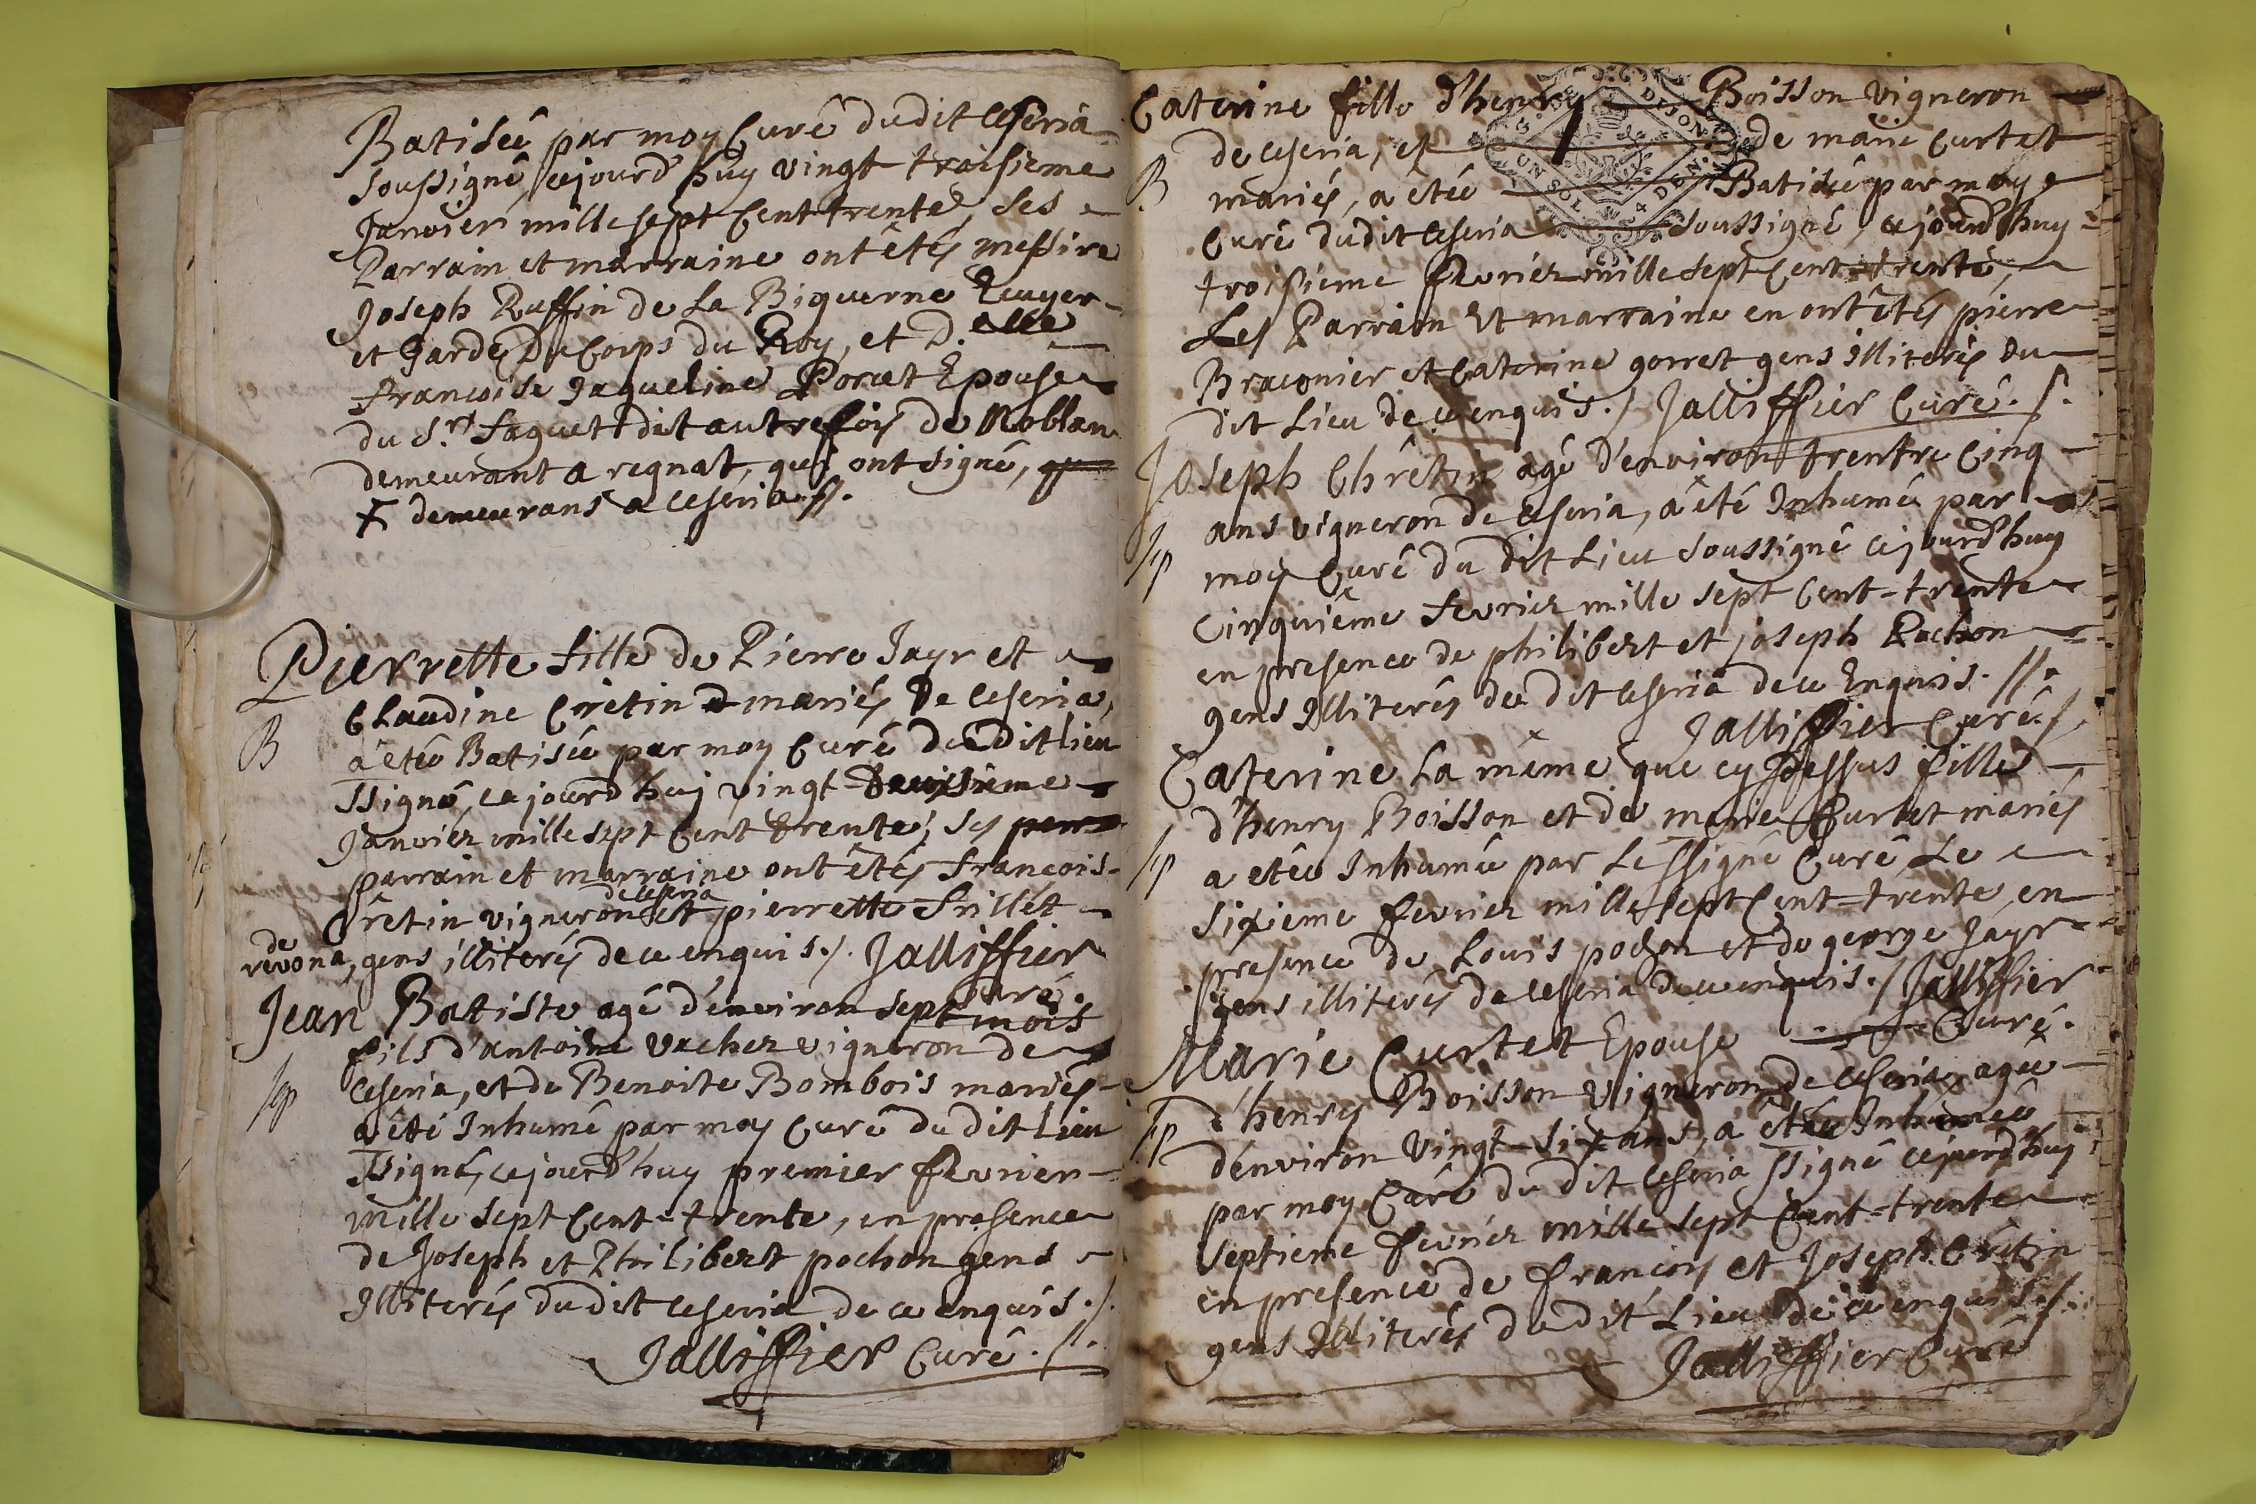 Batiseê par moy Curê dudit Ceseria
soussignê, cejourd'huy vingt troisieme
Janvier mille sept Cent trente, ses
Parrain et marraine ont êtés messire
Joseph Ruffin de La Biguerne Ecuyer
et Garde Du Corps du Roy, et D.elle
francoise Jaqueline Porcet Epouse
du S.r faguet dit autrefois de Noblan
demeurant a regnat, qui ont signé,
+ demeurans a Ceseria //.
Pierrette fille de Pierre Jayr et
Claudine Crêtin mariés De Ceseria,
B
a êteé Batiseé par moy Curé du Dit lieu
ssigné, cejourd'huy vingt-Deuxsieme
Janvier mille sept Cent trente; ses
parrain et marraine ont êtés francois
Crêtin vigneron de Ceseria et pierrette frillet
de
revona, gens illiterés de ce enquis ./. Jalliffier
Curé.
Jean Batiste agé d'environ sept mois
fils d'antoine Vacher vigneron de
Sep
Ceseria, et de Benoite Bombois mariés
a êté Inhumé par moy Curé du Dit lieu
ssigné, cejourd'huy premier fevrier
mille sept Cent=trente, en presence
de Joseph et Philibert pochon gens
Illiterés dudit Ceseria de ce enquis ./.
Jalliffier Curé ./.
Caterine fille d'henry Boisson Vigneron
de Ceseria, et de marie Curtet
B
mariés, a êteé Batiseé par moy
G. DE DIJON
UN SOL 4 DEN.
Curé dudit Ceseria soussigné, cejourd'huy
troisieme fevrier mille sept Cent=trente,
Les Parrain Et marraine en ont êtés pierre
Braconier et Caterine gorret gens illiterés du
dit Lieu de ce enquis ./ Jalliffier Curé ./.
Joseph Chrêtin agé d'environ trentre Cinq
ans vigneron de Ceseria, a êté Inhumé par
Sep
moy Curé du dit Lieu soussigné cejourd'huy
Cinquiême fevrier mille sept Cent-trente
en presence de philibert et joseph Pochon
gens Illiterés du dit Ceseria de ce Enquis. //.
Jalliffier Curé ./.
Caterine La même que cy Dessus fille
d'henry Boisson et de marie Curtet mariés
Sep
a eteé Inhumeé par Le ssigné Curé Le
sixieme fevrier mille sept Cent=trente, en
presence de Louis pochon et de george Jayr
gens illiterés de Ceseria de ce enquis ./ Jalliffier
Curé.
Marie Curtet Epouse
d'henry Boisson Vigneron de Ceseria ageé
Sep
d'environ vingt-six ans, a êteé Inhumeé
par moy Curé du dit Ceseria ssigné cejourd'huy
septieme fevrier mille sept Cent=trente
en presence de francois et Joseph Crêtin
gens Illiterés du dit Lieu de ce enquis ./.
Jalliffier Curé